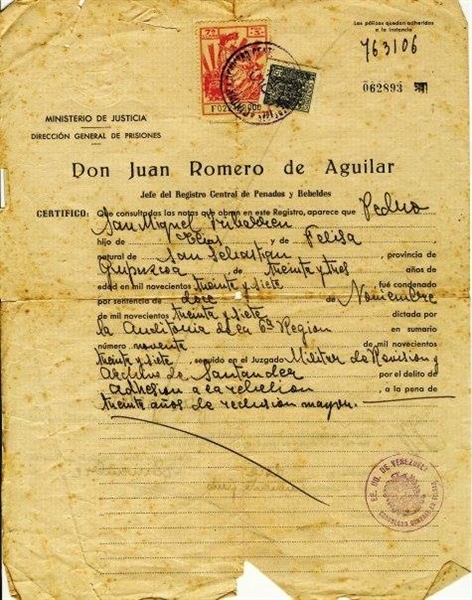 Las pólizas quedan adheridas
a la instancia
763106
062893
MINISTERIO DE JUSTICIA
DIRECCIÓN GENERAL DE PRISIONES
Don Juan Romero de Aguilar
Jefe del Registro Central de Penados y Rebeldes
CERTIFICO: Que consultadas las notas que obran en este Registro, aparece que Pedro
San Miguel
hijo de Elias y de Felisa
natural de San Sebastian, provincia de
Guipuzcoa, de treinta y tres años de
edad en mil novecientos treinta y siete fué condenado
por sentencia de doce de Noviembre
de mil novecientos treinta y siete dictada por
la Auditoria de la 6ª Region en sumario
número noventa de mil novecientos
treinta y siete, seguido en el Juzgado Militar de Revision y
Archivo de Santander por el delito de
adhesion a la rebelion, a la pena de
treinta años de reclusion mayor.
EE. UU. DE VENEZUELA